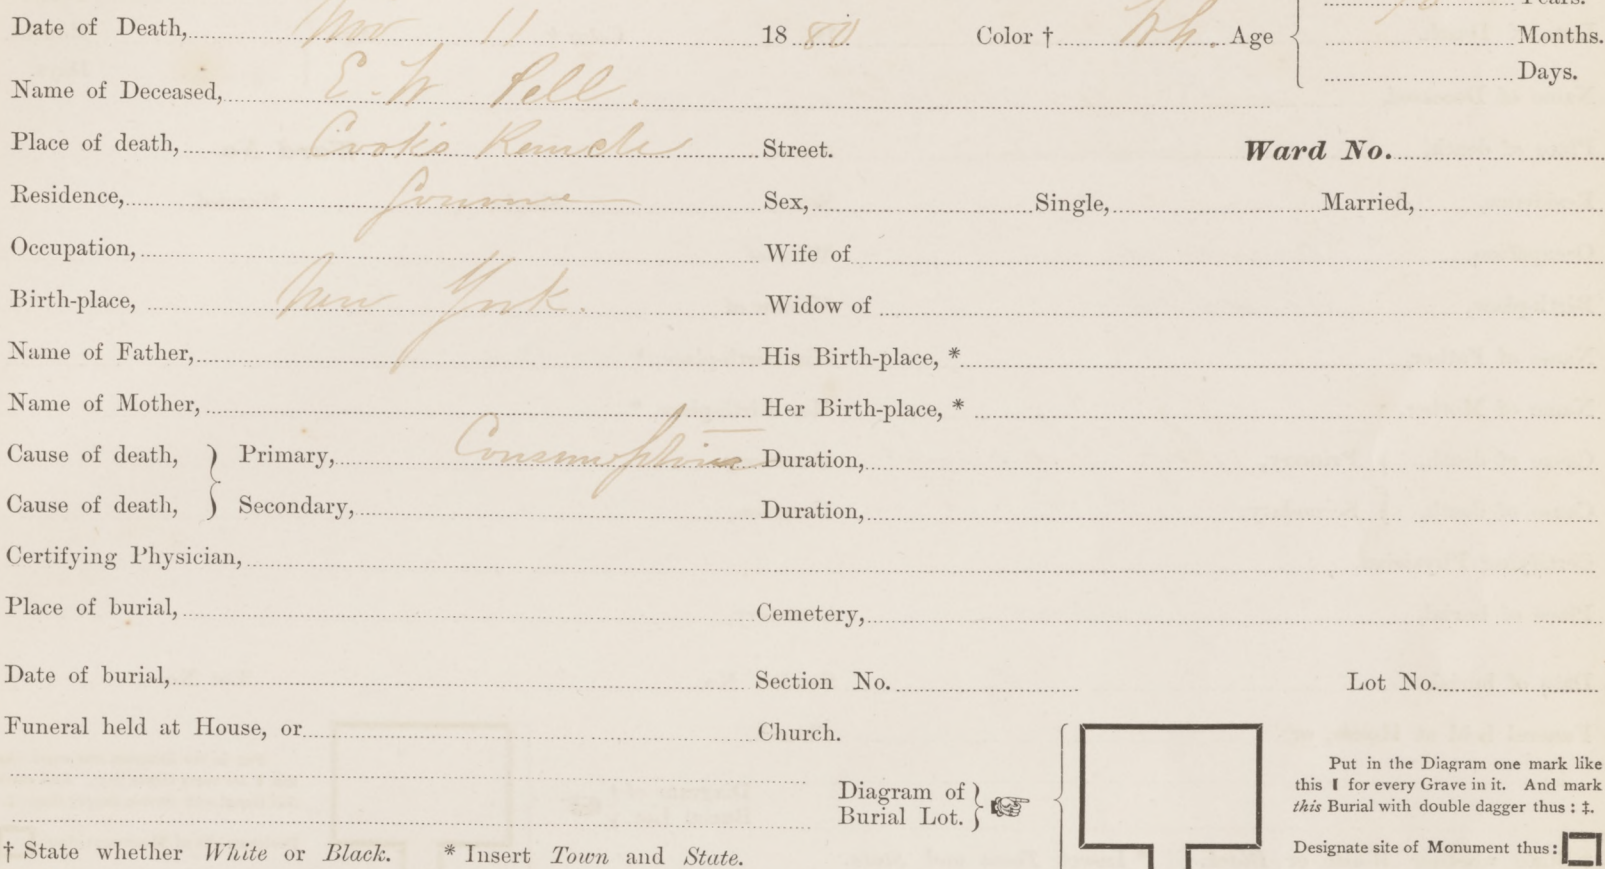 Years.
Date of Death, Nov 11 1880 Color † Wh. Age Months.
Days.
Name of Deceased, E. W Pell.
Place of death, Cook's Ranche Street. Ward No.
Residence, Sonoma Sex, Single, Married,
Occupation, Wife of
Birth-place, New York. Widow of
Name of Father, His Birth-place, *
Name of Mother, Her Birth-place, *
Cause of death, } Primary, Consumption Duration,
Cause of death, } Secondary, Duration,
Certifying Physician,
Place of burial, Cemetery,
Date of burial, Section No. Lot No.
Funeral held at House, or Church.
Diagram of
Burial Lot. }
Put in the Diagram one mark like
this I for every Grave in it. And mark
this Burial with double dagger thus : ‡.
Designate site of Monument thus :
† State whether White or Black. * Insert Town and State.